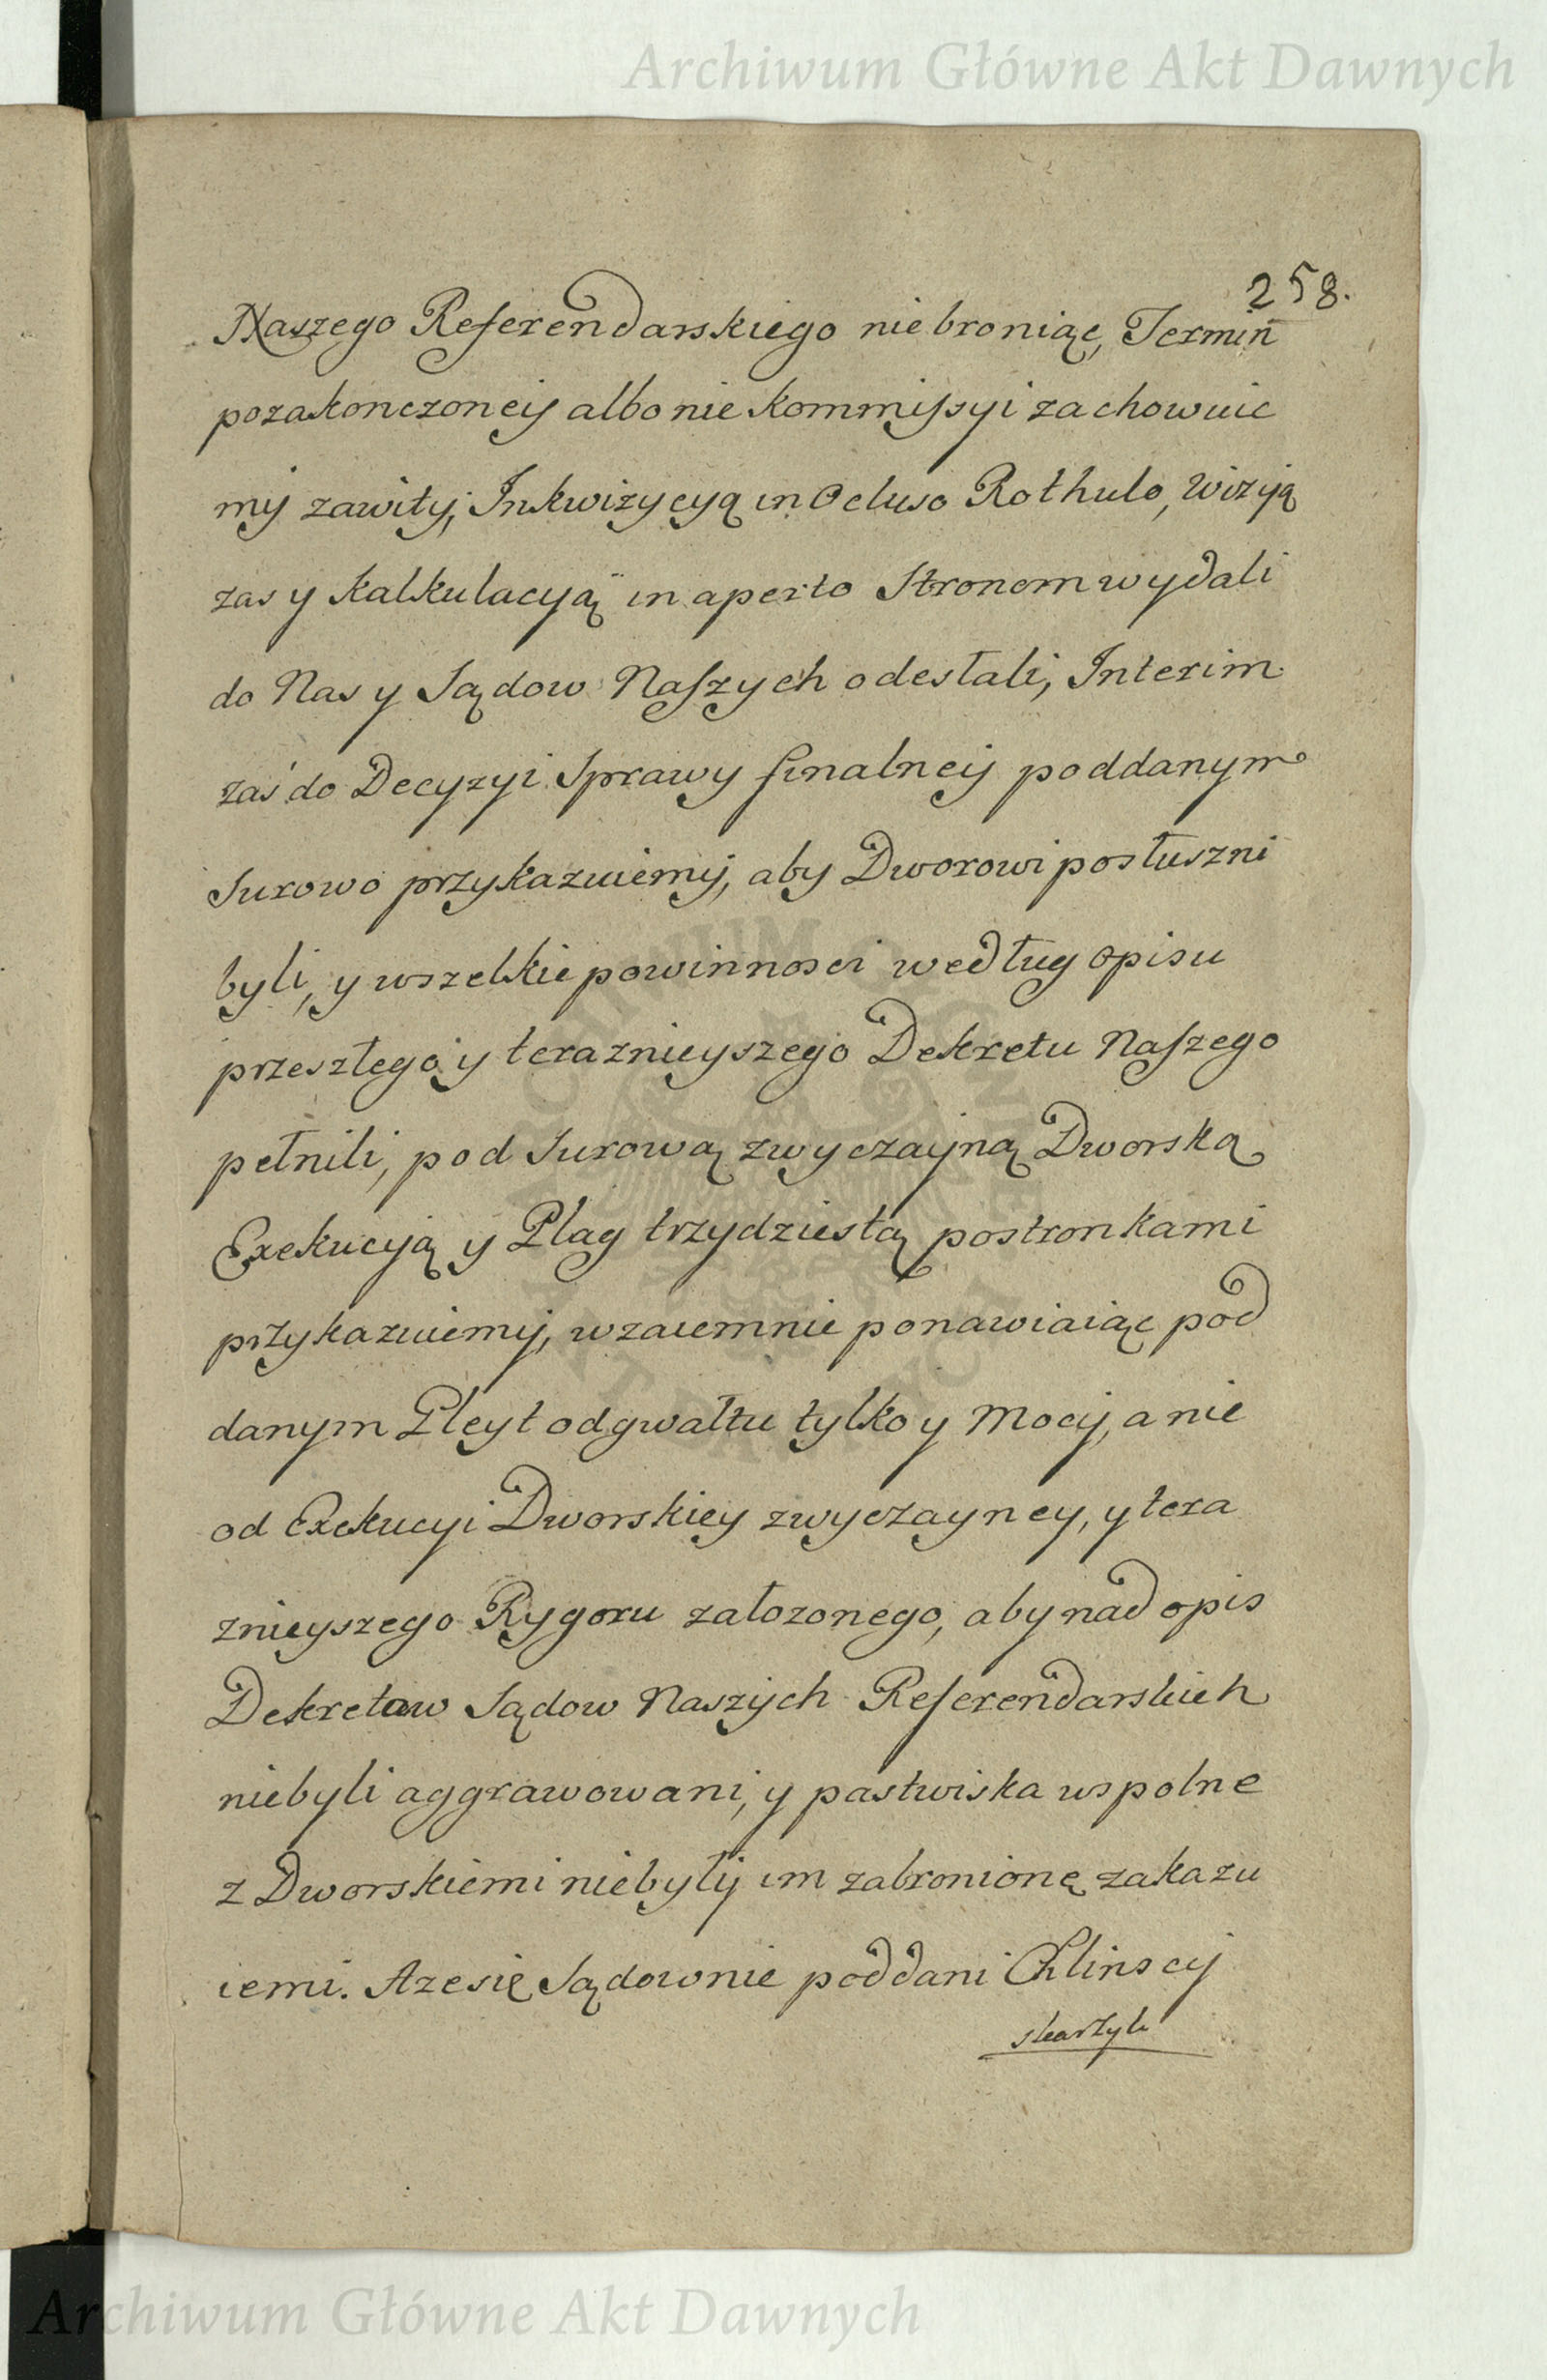 Archiwum Główne Akt Dawnych
258.
Naszego Referendarskiego niebroniąc, Termin
pozakonczoneij albo nie kommissyi zachowuie
mÿ zawitÿ, Inkwizycyą in Ocluso Rothulo, Wizyją
zas y kalkulacyją in aperto Stronom wydali
do Nas y Sądow Naszych odesłali, Interim
zaś do Decyzyi Sprawy finalneij poddanym
Surowo przykazuiemÿ, aby Dworowi posłuszni
byli, y wszelkie powinnosci według opisu
przeszłego y teraznieyszego Dekretu Naszego
pełnili, pod Surową zwyczayną Dworską
Exekucyją y Plag trzydziestą postronkami
przykazuiemÿ, wzaiemnie ponawiaiąc pod
danym Gleyt od gwałtu tylko y Mocÿ, a nie
od Exekucyi Dworskiey zwyczayney, y tera
znieyszego Rygoru załozonego, aby nad opis
Dekretow Sądow Naszÿch Referendarskich
niebyli aggrawowani, y pastwiska wspolne
z Dworskiemi niebyłÿ im zabronionę zakazu
iemi. Aze się Sądownie poddani Chlinscÿ
skarżyli
Archiwum Główne Akt Dawnych